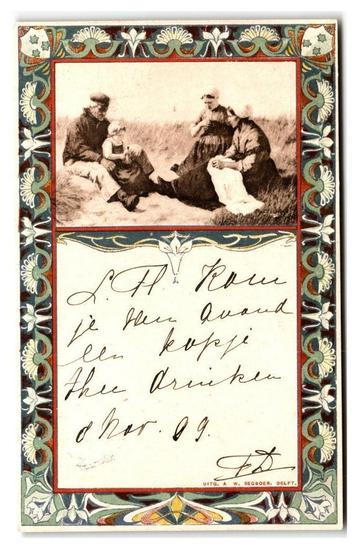 L. A Kom
je van avond
een kopje
thee drinken
8 Nov. 09.
FD
UITG. A. W. SEGBOER, DELFT.